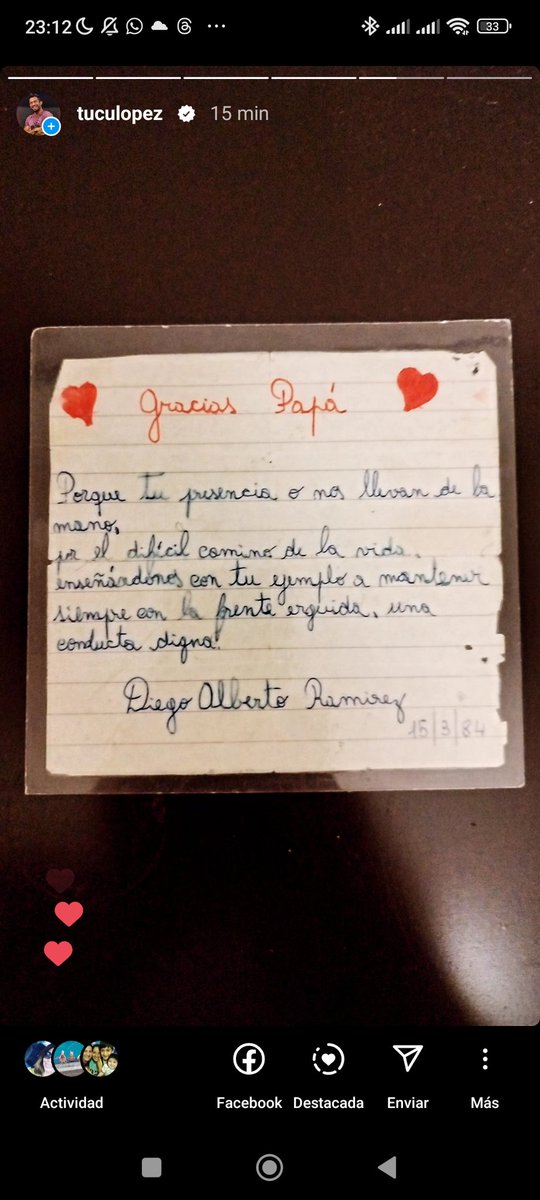 23:12
33
tuculopez 15 min
Gracias Papá
Porque tu presencia o nos llevan de la
mano,
por el difícil camino de la vida.
enseñándonos con tu ejemplo a mantener
siempre con la frente erguida, una
conducta digna.
Diego Alberto Ramirez
15/3/84
Actividad Facebook Destacada Enviar Más